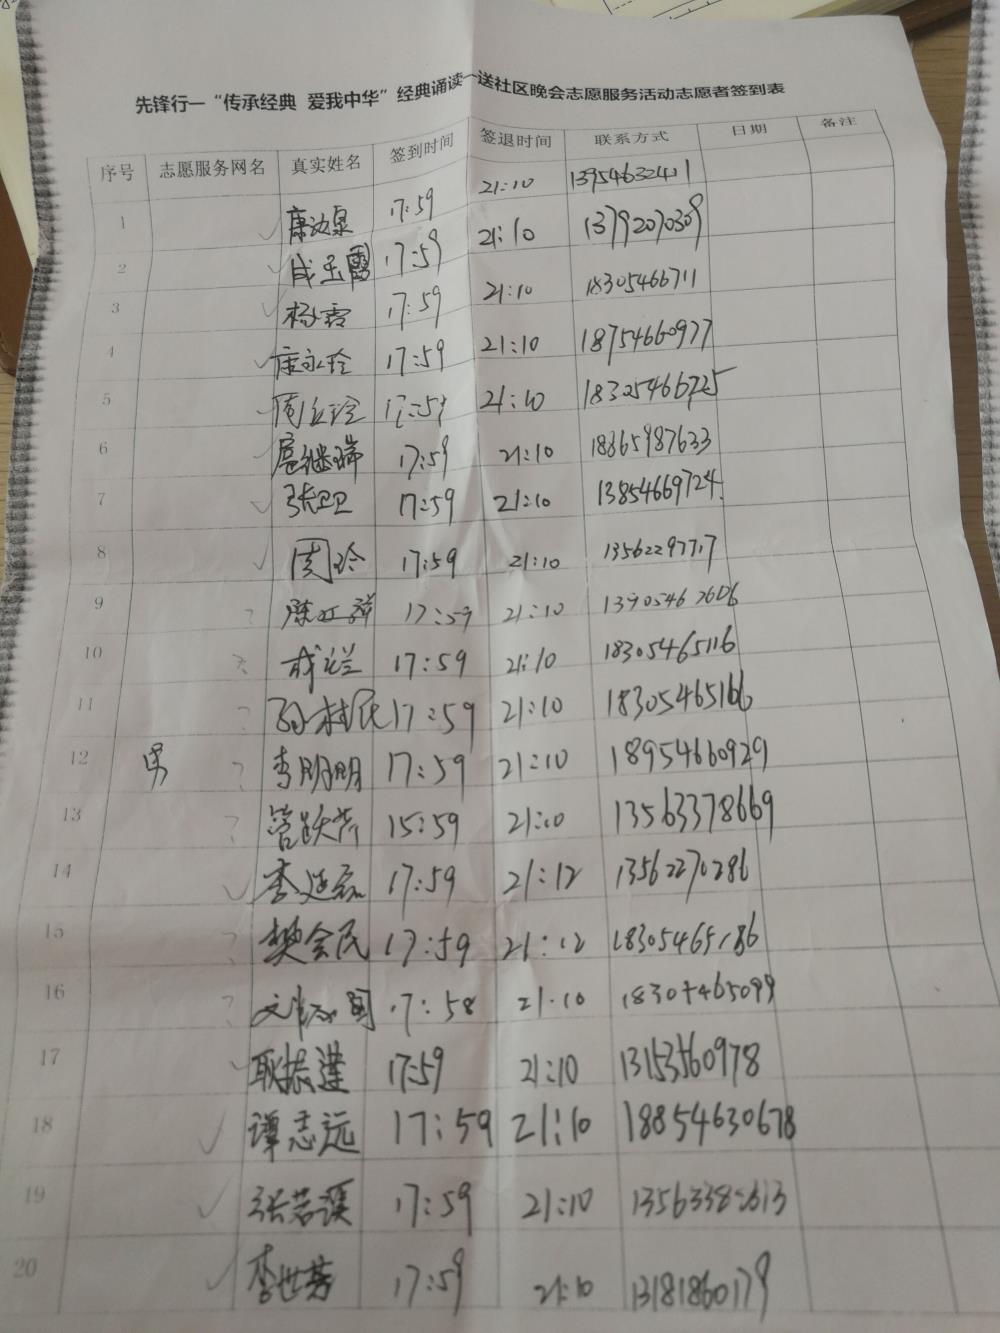 先锋行一“传承经典 爱我中华”经典诵读一送社区晚会志愿服务活动志愿者签到表
序号 志愿服务网名 真实姓名 签到时间 签退时间 联系方式 日期 备注
1 17:59 21:10 13954632411
2 成玉霞 17:59 21:10 13792070309
3 杨霞 17:59 21:10 18305466711
4 唐永玲 17:59 21:10 18754660977
5 21:10 18305466725
6 扈继瑞 17:59 21:10 18365987633
7 张卫卫 17:59 21:10 13854669724
8 周玲 17:59 21:10 13562297717
9 ? 17:59 21:10
10 ? 17:59 21:10 18305465116
11 ? 孙桂民 17:59 21:10 18305465166
12 男 ? 李明明 17:59 21:10 18954660929
13 ? 管跃芹 15:59 21:10 13563378669
14 李延磊 17:59 21:12 13562270286
15 ? 樊会民 17:59 21:12 18305465186
16 ? 17:58 21:10
17 耿振莲 17:59 21:10 13153560978
18 谭志远 17:59 21:10 18854630678
19 张若溪 17:59 21:10
20 李世芳 17:59 21:10 13181860179